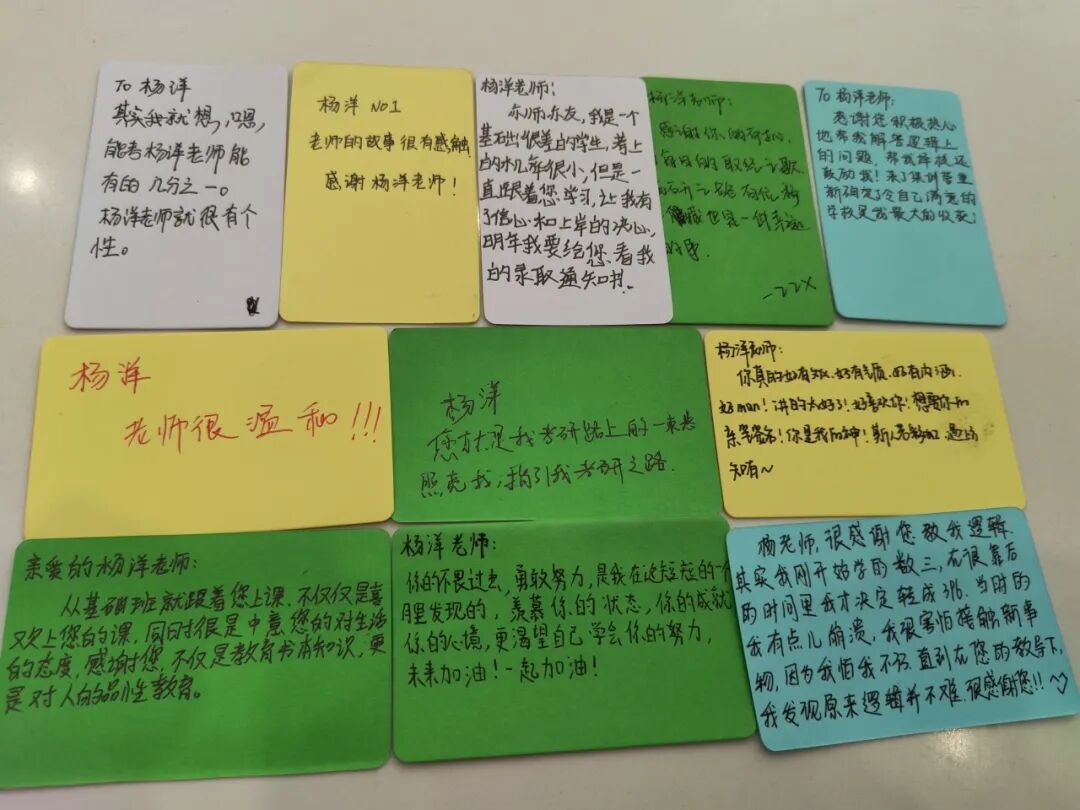 To 杨洋
其实我就想,嗯,
能考杨洋老师能
有的几分之一。
杨洋老师就很有个
性。
杨洋 NO1
老师的故事很有感触
感谢杨洋老师!
杨洋老师:
亦师亦友,我是一个
基础很差的学生,考上
的机率很小,但是一
直跟着您学习,让我有
了信心和上岸的决心,
明年我要给您看我
的录取通知书.
杨洋老师:
-ZZX
To 杨洋老师:
感谢您积极热心
地帮我解答逻辑上
的问题,帮我择校还
鼓励我!来了集训营重
新确定了令自己满意的
学校是我最大的收获!
杨洋
老师很温和!!!
杨洋
您就是我考研路上的一束光
照亮我,指引我考研之路.
杨洋老师:
你真的好有效.好有气质.好有内涵.
好man!讲的太好了!好喜欢你!想要你的
亲笔签名!你是我的神!斯人若彩虹 遇上方
知有~
亲爱的杨洋老师:
从基础班就跟着您上课.不仅仅是喜
欢上您的课,同时很是中意您的对生活
的态度,感谢您,不仅是教育书本知识,更
是对人的品性教育。
杨洋老师:
你的不畏过去,勇敢努力,是我在这短短的一个
月里发现的,羡慕你的状态,你的成就
你的心境,更渴望自己学会你的努力,
未来加油!一起加油!
杨老师,很感谢您教我逻辑.
其实我刚开始学的数三,在很靠后
的时间里我才决定转成396,当时的
我有点儿崩溃,我很害怕接触新事
物,因为我怕我不行.直到在您的教导下,
我发现原来逻辑并不难.很感谢您!!